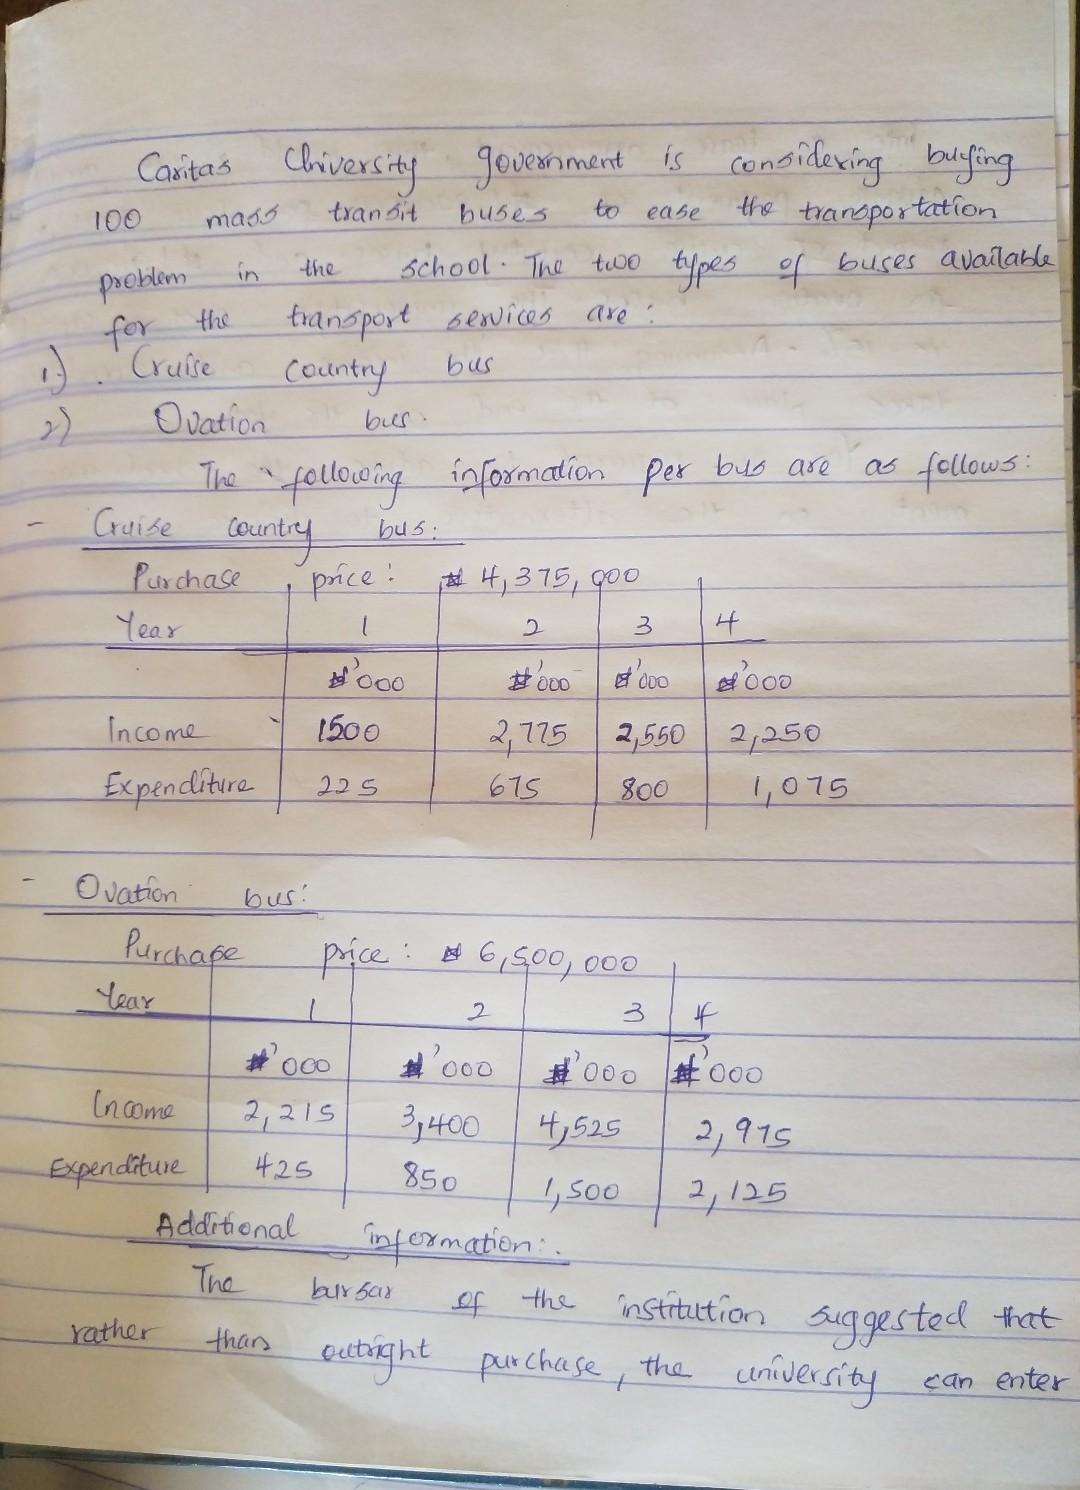 Caritas University government is considering buying
100 mass transit buses to ease the transportation
problem in the school. The two types of buses available
for the transport services are:
1). Cruise country bus
2) Ovation bus.
The following information per bus are as follows:
- Cruise country bus:
Purchase price: ₦ 4,375,000
Year 1 2 3 4
₦'000 ₦'000 ₦'000 ₦'000
Income 1500 2,775 2,550 2,250
Expenditure 225 675 800 1,075
- Ovation bus:
Purchase price: ₦ 6,500,000
Year 1 2 3 4
₦'000 ₦'000 ₦'000 ₦'000
Income 2,215 3,400 4,525 2,975
Expenditure 425 850 1,500 2,125
Additional information:.
The bursar of the institution suggested that
rather than outright purchase, the university can enter